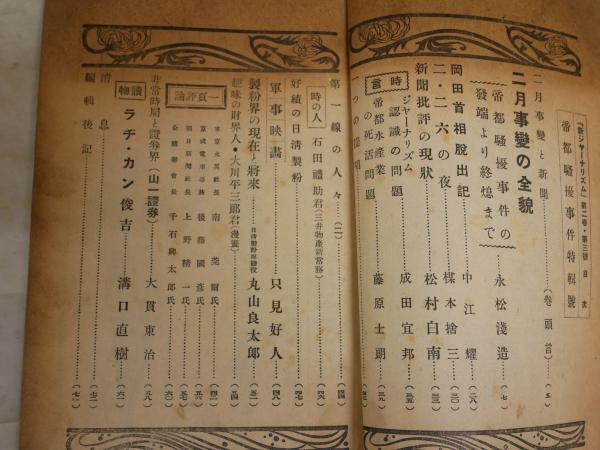 『新ジャーナリズム』第二卷・第三號 目次
帝都騷擾事件特輯號
二月事變と新聞……(卷頭言)…(五)
二月事變の全貌
帝都騷擾事件の
發端より終熄まで
永松淺造…(七)
岡田首相脫出記
中江耀…(二八)
二・二六の夜
楳本捨三…(三〇)
新聞批評の現狀
松村白南…(三三)
時言
ジャーナリズム認識の問題
成田宜邦…(三五)
帝都水產業の死活問題
藤原士朗…(三九)
一つの提唱
第一線の人々(二)…(四四)
時の人
石田禮助君(三井物產新常務)…(四六)
好績の日淸製粉
軍事映畫
只見好人…(四九)
製粉界の現在と將來
日淸製粉取締役
丸山良太郎…(五二)
趣味の財界人・大川平三郎君(漫畫)…(五四)
一頁評論
南莞爾氏
京成電車專務
後藤國彥氏
朝日新聞社
上野精一氏
千石興太郎氏…(六〇)
非常時局と證券界(山一證券)
大貫東治…(五八)
讀物
ラチ・カン俊吉
溝口直樹…(六一)
消息
編輯後記